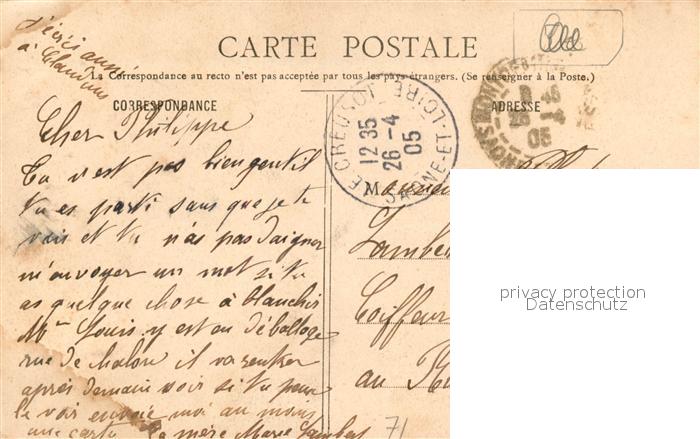 j'écris aussi
à Claudius
CARTE POSTALE
La Correspondance au recto n'est pas acceptée par tous les pays étrangers. (Se renseigner à la Poste.)
CORRESPONDANCE
ADRESSE
LE CREUSOT
12 35
26 -4
05
SAÔNE-ET-LOIRE
26 -4
05
Cher Philippe
Tu n'est pas bien gentil
tu es parti sans que je te
vois et tu n'as pas daigner
m'envoyer un mot si tu
as quelque chose à blanchir
Mme Louis y est au déballage
rue de Chalon il va rentrer
après demain voir si tu peux
le voir envoie moi au moins
une carte ta mère Marie Lambert
M
Lamber
Coiffeur
au
71
privacy protection
Datenschutz